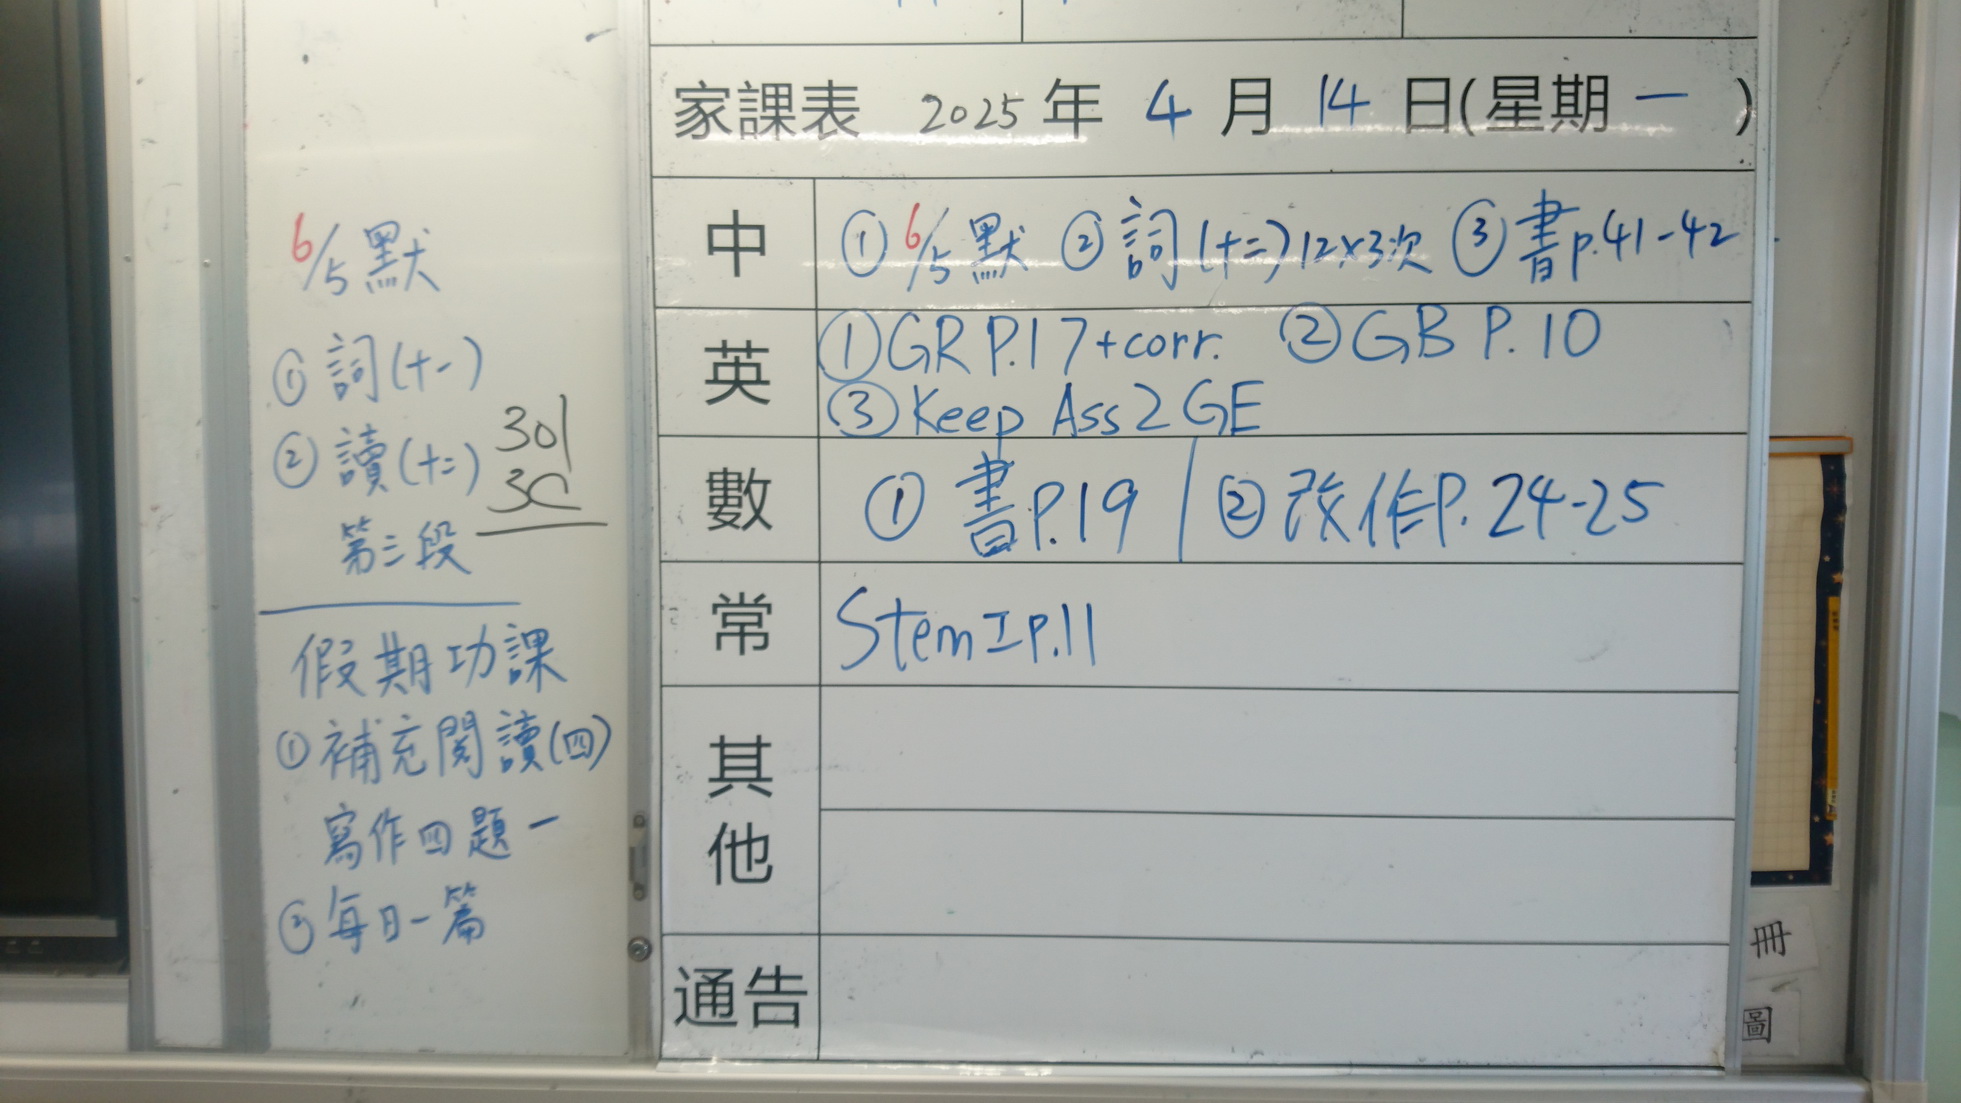 6/5 默
① 詞(十一)
② 讀(十二)
第三段
301
3C
假期功課
① 補充閱讀(四)
寫作四題一
② 每日一篇
家課表 2025 年 4 月 14 日(星期一)
中 ① 6/5 默 ② 詞(十二)12x3次 ③ 書p.41-42
英 ① GR P.17+corr. ② GB P.10
③ Keep Ass 2 GE
數 ① 書P.19 | ② 改作P.24-25
常 Stem I P.11
其他
通告
冊
圖